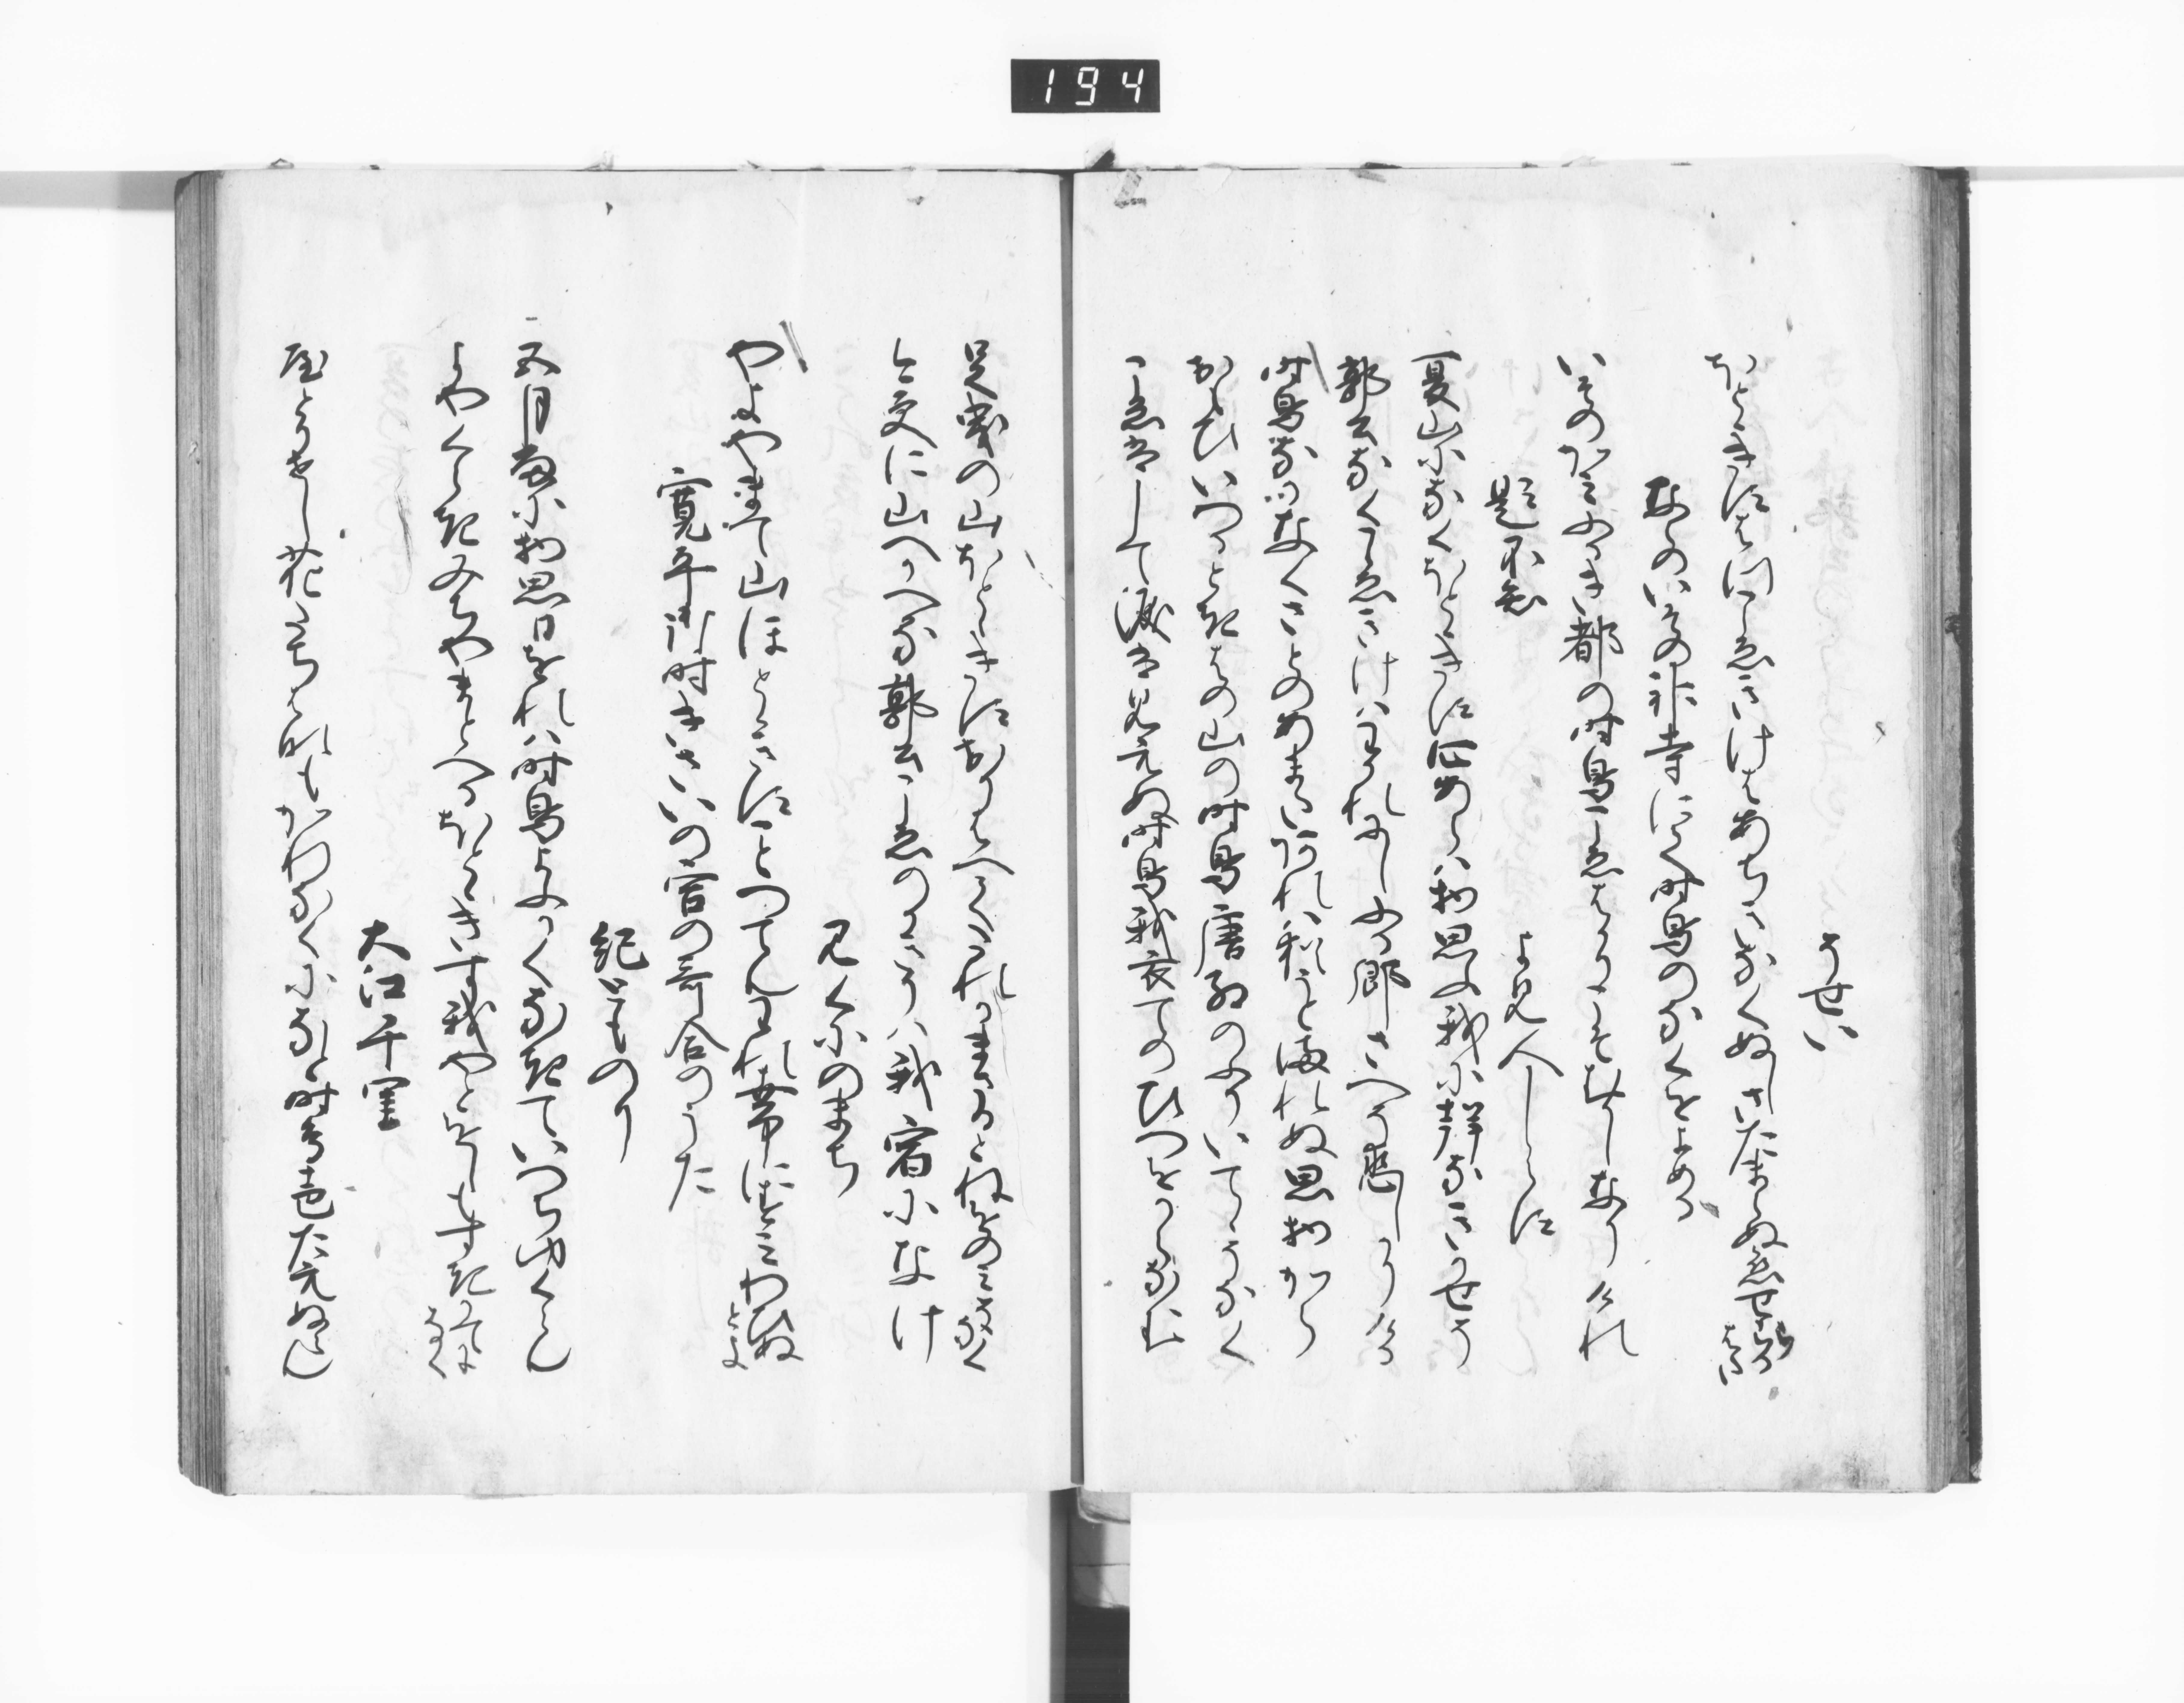 そせい
ほとゝきすはつこゑきけはあちきなくぬしさたまらぬ恋せらるはた
ならのいその神寺にて時鳥のなくをよめる
いそのかみふるき都の時鳥こゑはかりこそむかしなりけれ
題不知　　よみ人しらす
夏山になくほとゝきす心あらは物思ふ我に声なきかせそ
郭公なくこゑきけはわかれにし故郷さへそ恋しかりける
時鳥なかなくさとのあまたあれは猶うとまれぬ思物から
おもひいつるときはの山の時鳥唐紅のふりいてゝそなく
こゑはして涙はみえぬ時鳥我衣手のひつをからなん
足曳の山ほとゝきすおりはへてたれかまさると音をのみそなく
今更に山へかへるな郭公こゑのかきりは我宿になけ
みくにのまち
やよやまて山ほとゝきすことつてんわれ世中にすみわひぬとよ
寛平御時きさいの宮の哥合のうた
紀とものり
五月雨に物思ひをれは時鳥よふかくなきていつちゆくらん
よやくらきみちやまとへるほとゝきす我やとをしもすきかてになく
大江千里
屋とりせし花たちはなもかれなくになと時鳥こゑたえぬらん